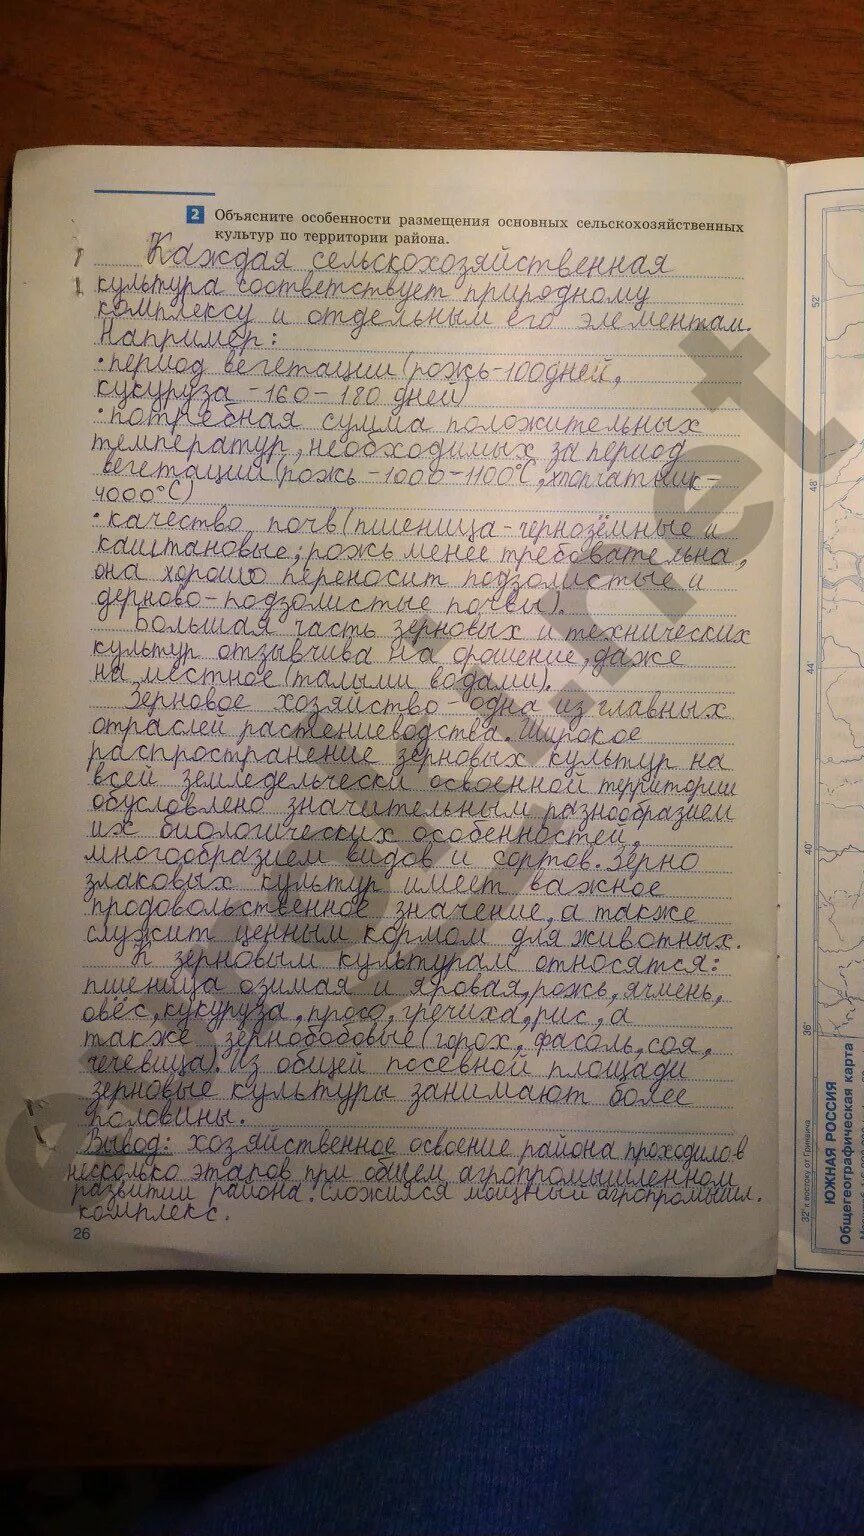 2 Объясните особенности размещения основных сельскохозяйственных
культур по территории района.
Каждая сельскохозяйственная
культура соответствует природному
комплексу и отдельным его элементам.
Например:
• период вегетации (рожь - 100 дней,
кукуруза - 160 - 180 дней)
• потребная сумма положительных
температур, необходимых за период
вегетации (рожь - 1000 - 1100°C, хлопчатник -
4000°C)
• качество почв (пшеница - чернозёмные и
каштановые; рожь менее требовательна,
она хорошо переносит подзолистые и
дерново-подзолистые почвы).
Большая часть зерновых и технических
культур отзывчива на орошение, даже
на местное (талыми водами).
Зерновое хозяйство - одна из главных
отраслей растениеводства. Широкое
распространение зерновых культур на
всей земледельчески освоенной территории
обусловлено значительным разнообразием
их биологических особенностей,
многообразием видов и сортов. Зерно
злаковых культур имеет важное
продовольственное значение, а также
служит ценным кормом для животных.
К зерновым культурам относятся:
пшеница озимая и яровая, рожь, ячмень,
овёс, кукуруза, просо, гречиха, рис, а
также зернобобовые (горох, фасоль, соя,
чечевица). Из общей посевной площади
зерновые культуры занимают более
половины.
Вывод: хозяйственное освоение района проходило в
несколько этапов при общем агропромышленном
развитии района. Сложился мощный агропромышл.
комплекс.
26
52°
48°
44°
40°
36°
32° к востоку от Гринвича
ЮЖНАЯ РОССИЯ
Общегеографическая карта